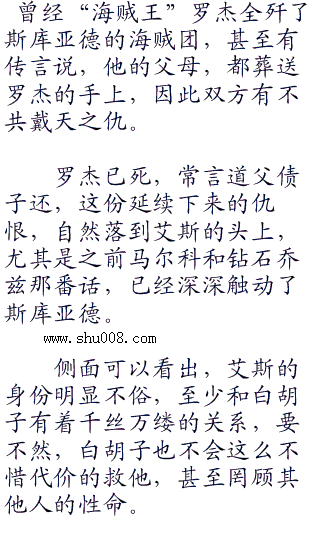 曾经“海贼王”罗杰全歼了
斯库亚德的海贼团，甚至有
传言说，他的父母，都葬送
罗杰的手上，因此双方有不
共戴天之仇。
罗杰已死，常言道父债
子还，这份延续下来的仇
恨，自然落到艾斯的头上，
尤其是之前马尔科和钻石乔
兹那番话，已经深深触动了
斯库亚德。
www.shu008.com
侧面可以看出，艾斯的
身份明显不俗，至少和白胡
子有着千丝万缕的关系，要
不然，白胡子也不会这么不
惜代价的救他，甚至罔顾其
他人的性命。